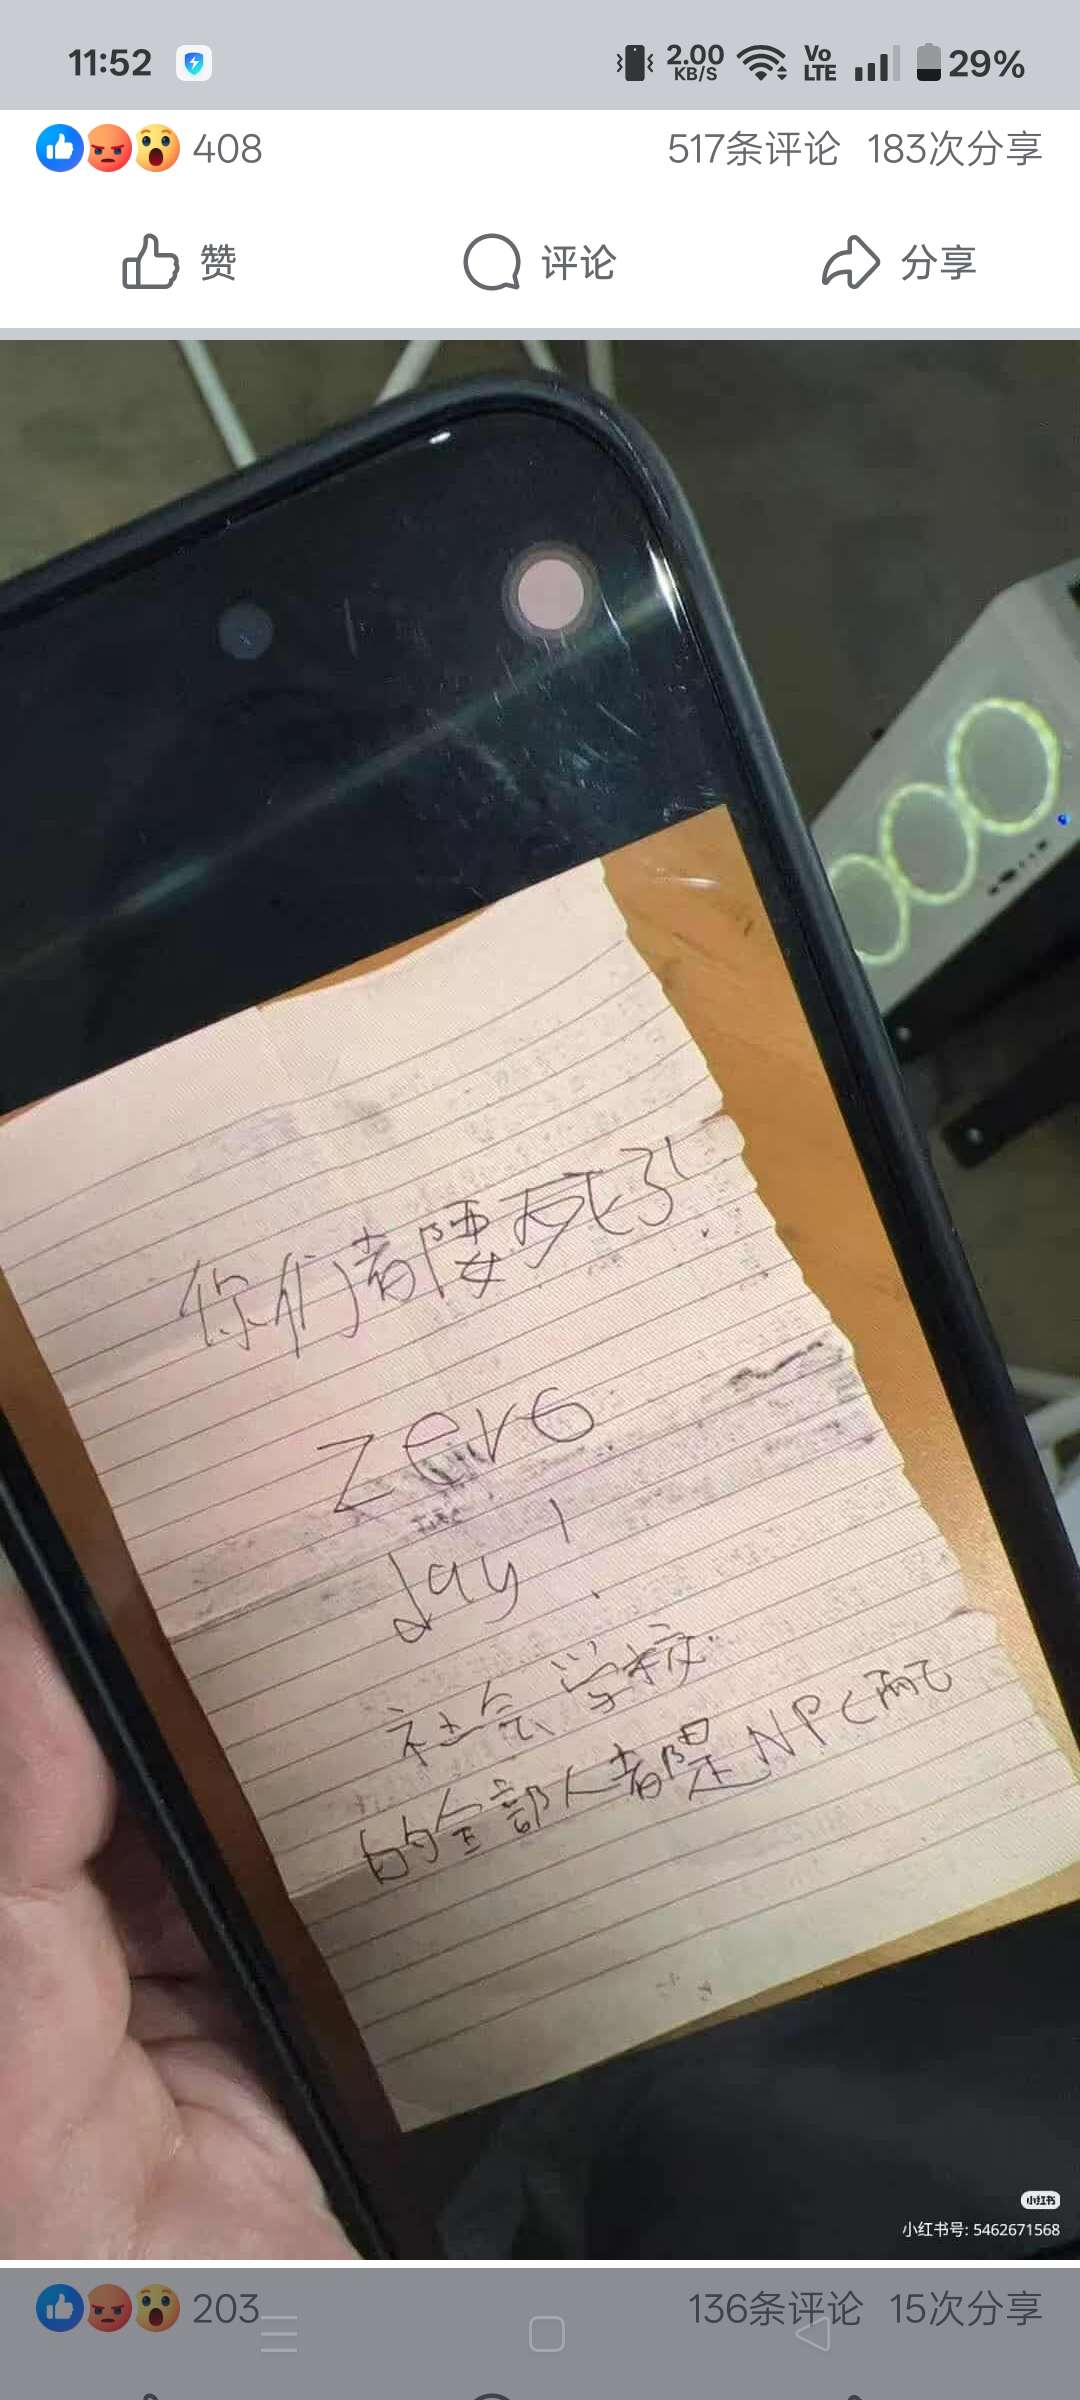 11:52 2.00 KB/S Vo LTE 29%
408 517条评论 183次分享
赞 评论 分享
你们都要死了!
zero
day!
社会学校
的全部人都是NPC而已
小红书
小红书号: 5462671568
203 136条评论 15次分享